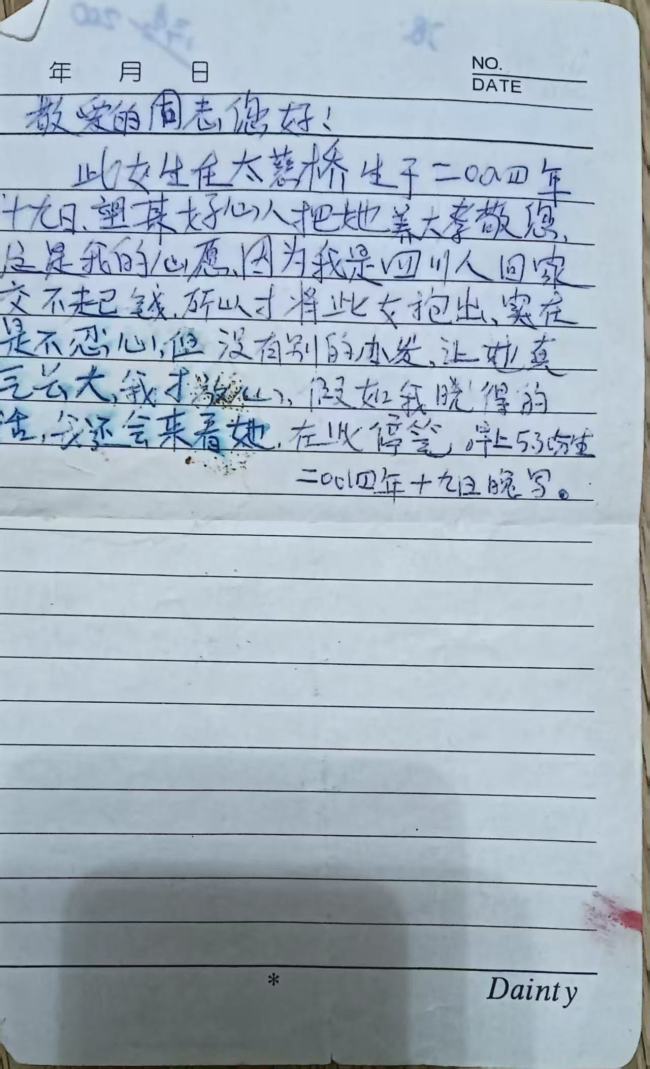 年 月 日
NO.
DATE
敬爱的同志您好!
此女生在太慈桥生于二00四年
十九日、望某好心人把她养大孝敬您、
这是我的心愿、因为我是四川人回家
交不起钱、所以才将此女抱出、实在
是不忍心,但没有别的办发、让她真
长大,我才放心、假如我晓得的
话,我还会来看她,在此停笔。早上5:30分生
二00四年十九日晚写。
*
Dainty